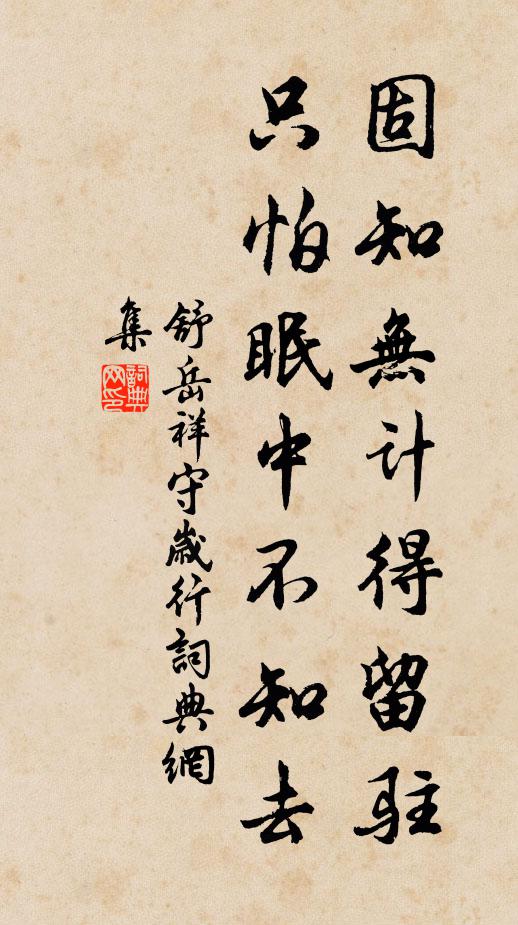 固知無计得留駐
只怕眠中不知去
舒岳祥守歲行詞典網
集
詞典
网印